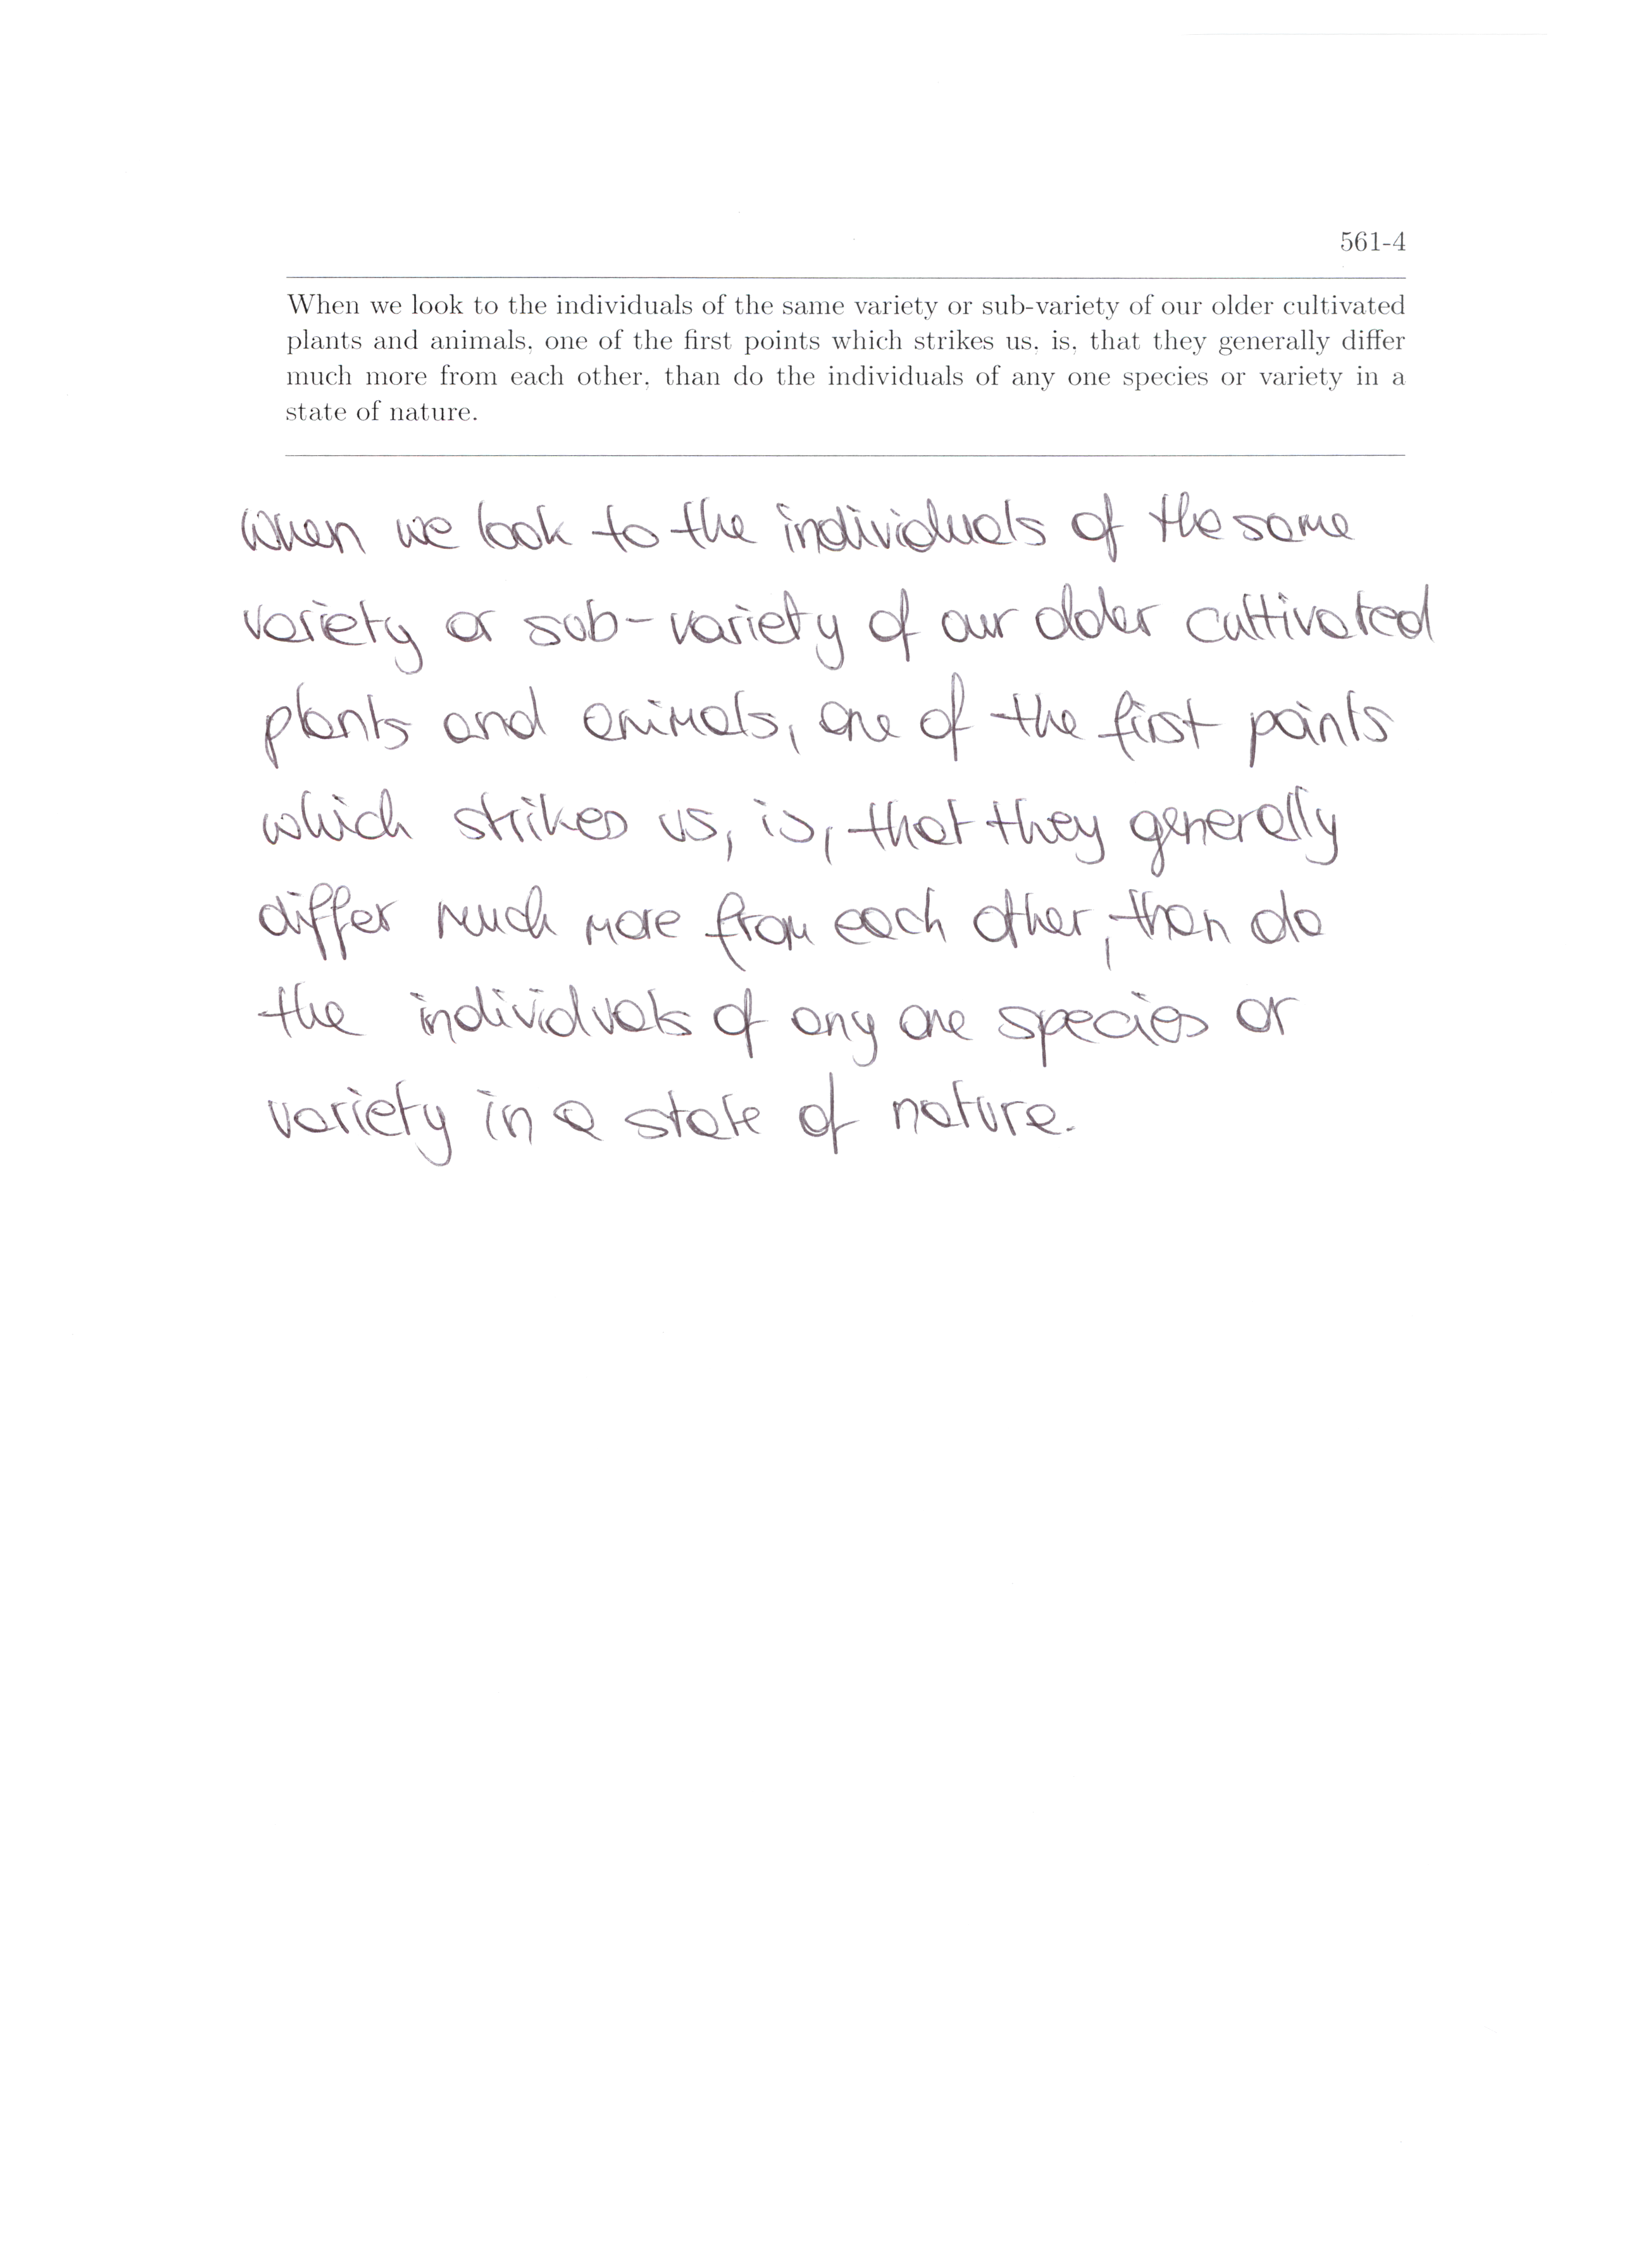 561-4
When we look to the individuals of the same variety or sub-variety of our older cultivated
plants and animals, one of the first points which strikes us, is, that they generally differ
much more from each other, than do the individuals of any one species or variety in a
state of nature.
When we look to the individuals of the same
variety or sub-variety of our older cultivated
plants and animals, one of the first points
which strikes us, is, that they generally
differ much more from each other, than do
the individuals of any one species or
variety in a state of nature.